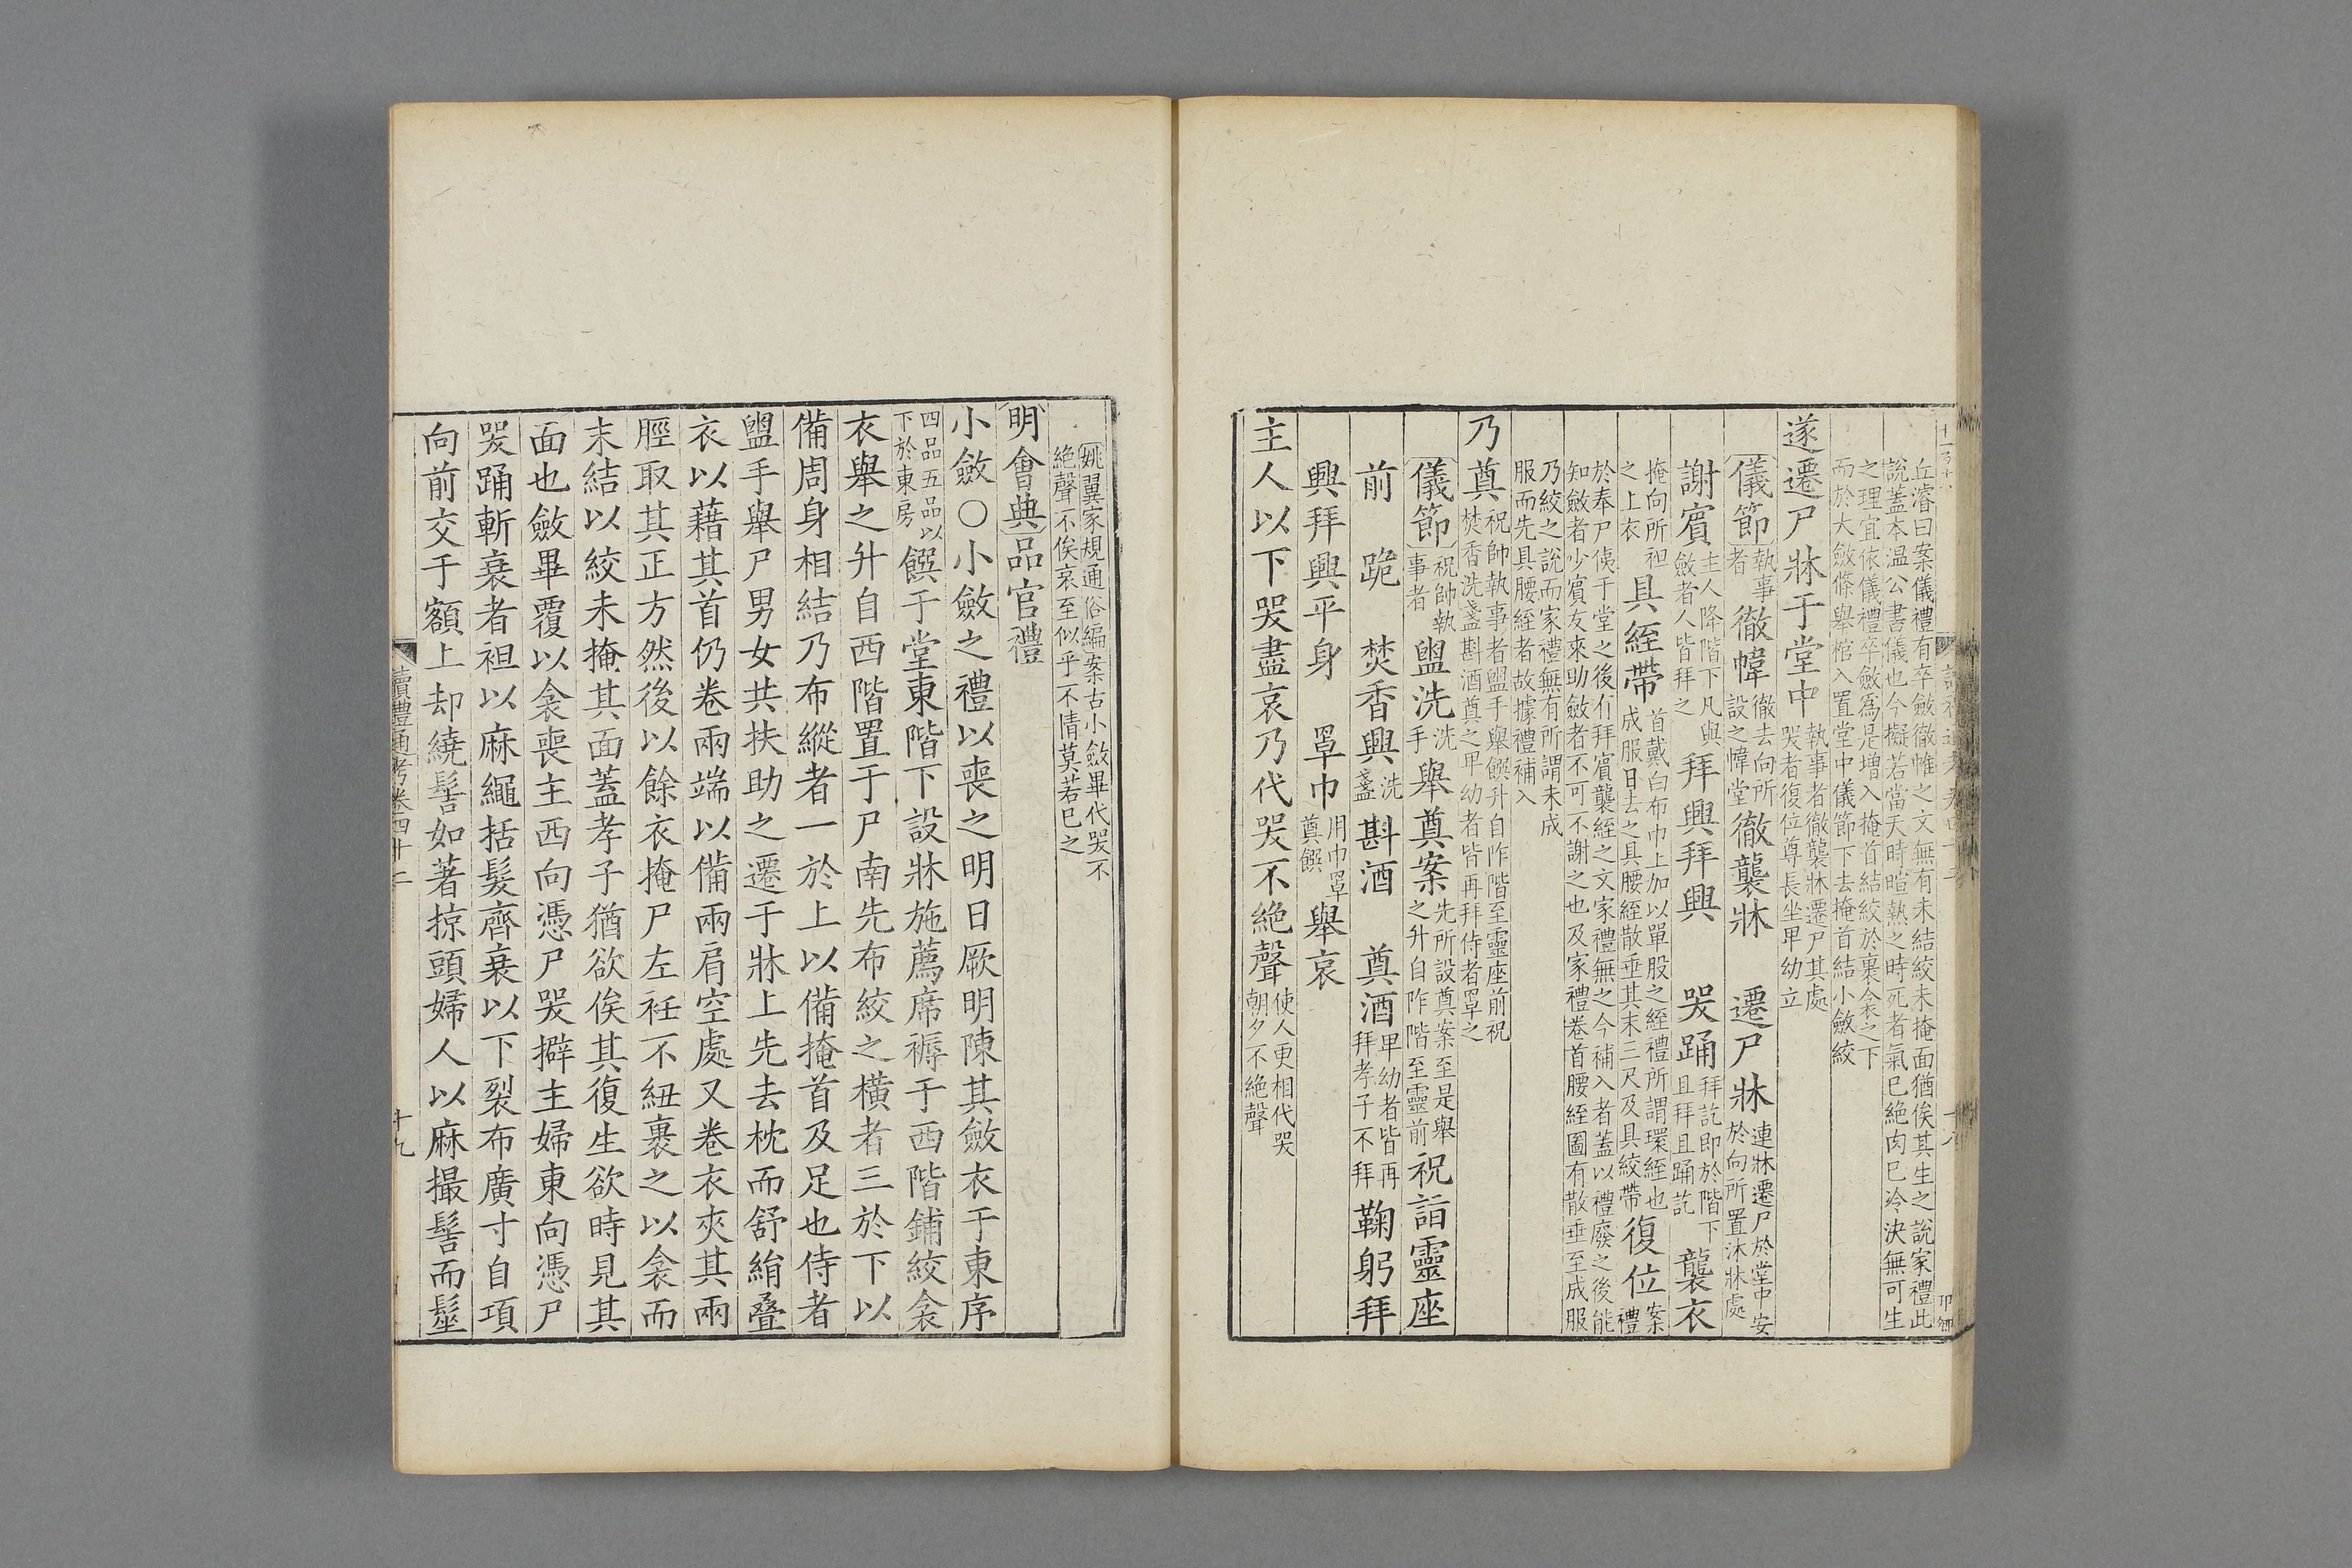 丘濬曰案儀禮有卒斂徹帷之文無有未結絞未掩面猶俟其生之說家禮此
說蓋本温公書儀也今擬若當天時暄熱之時死者氣已絶肉已冷決無可生
之理宜依儀禮卒斂爲是增入掩首結絞於裹衾之下
而於大斂條舉棺入置堂中儀節下去掩首結小斂絞
遂遷尸牀于堂中執事者徹襲牀遷尸其處
哭者復位尊長坐卑幼立
儀節執事
者徹幃徹去向所
設之幃堂徹襲牀 遷尸牀連牀遷尸於堂中安
於向所置沐牀處
謝賓主人降階下凡與
斂者人皆拜之拜興拜興 哭踊拜訖即於階下
且拜且踊訖襲衣
掩向所袒
之上衣具絰帶首戴白布巾上加以單股之絰禮所謂環絰也
成服日去之具腰絰散垂其末三尺及具絞帶復位案
禮
於奉尸侇于堂之後有拜賓襲絰之文家禮無之今補入者蓋以禮廢之後能
知斂者少賓友來助斂者不可不謝之也及家禮卷首腰絰圖有散垂至成服
乃絞之說而家禮無有所謂未成
服而先具腰絰者故據禮補入
乃奠祝帥執事者盥手舉饌升自阼階至靈座前祝
焚香洗盞斟酒奠之卑幼者皆再拜侍者罩之
儀節祝帥執
事者盥洗洗
手舉奠案先所設奠案至是舉
之升自阼階至靈前祝詣靈座
前 跪 焚香興洗
盞斟酒 奠酒卑幼者皆再
拜孝子不拜鞠躬拜
興拜興平身 罩巾用巾罩
奠饌舉哀
主人以下哭盡哀乃代哭不絶聲使人更相代哭
朝夕不絶聲
姚翼家規通俗編案古小斂畢代哭不
絶聲不俟哀至似乎不情莫若已之
明會典品官禮
小斂○小斂之禮以喪之明日厥明陳其斂衣于東序
四品五品以
下於東房饌于堂東階下設牀施薦席褥于西階鋪絞衾
衣舉之升自西階置于尸南先布絞之橫者三於下以
備周身相結乃布縱者一於上以備掩首及足也侍者
盥手舉尸男女共扶助之遷于牀上先去枕而舒絹叠
衣以藉其首仍卷兩端以備兩肩空處又卷衣夾其兩
脛取其正方然後以餘衣掩尸左衽不紐裹之以衾而
末結以絞未掩其面蓋孝子猶欲俟其復生欲時見其
面也斂畢覆以衾喪主西向憑尸哭擗主婦東向憑尸
哭踊斬衰者袒以麻繩括髮齊衰以下裂布廣寸自項
向前交于額上却繞髻如著掠頭婦人以麻撮髻而髽
讀禮通考卷四十二
十九